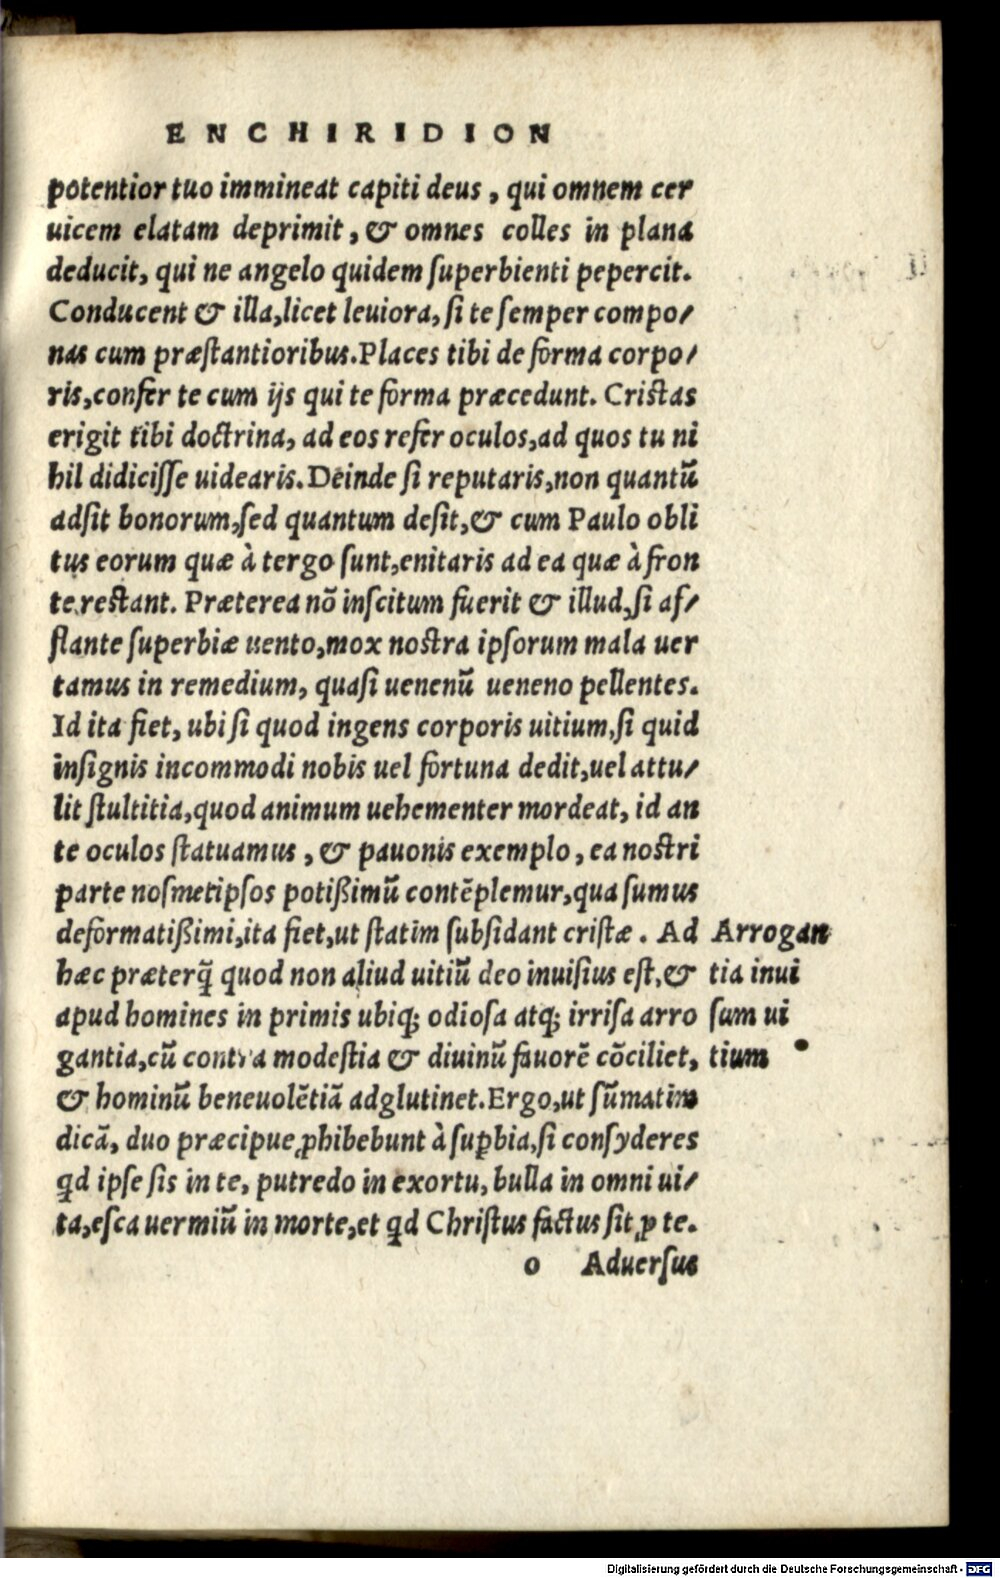 ENCHIRIDION
potentior tuo immineat capiti deus, qui omnem cer
uicem elatam deprimit, & omnes colles in plana
deducit, qui ne angelo quidem ſuperbienti pepercit.
Conducent & illa, licet leuiora, ſi te ſemper compo/
nas cum præſtantioribus. Places tibi de forma corpo/
ris, confer te cum ijs qui te forma præcedunt. Criſtas
erigit tibi doctrina, ad eos refer oculos, ad quos tu ni
hil didiciſſe uidearis. Deinde ſi reputaris, non quantũ
adſit bonorum, ſed quantum deſit, & cum Paulo obli
tus eorum quæ à tergo ſunt, enitaris ad ea quæ à fron
te reſtant. Præterea nõ inſcitum fuerit & illud, ſi af/
flante ſuperbiæ uento, mox noſtra ipſorum mala uer
tamus in remedium, quaſi uenenũ ueneno pellentes.
Id ita fiet, ubi ſi quod ingens corporis uitium, ſi quid
inſignis incommodi nobis uel fortuna dedit, uel attu/
lit ſtultitia, quod animum uehementer mordeat, id an
te oculos ſtatuamus, & pauonis exemplo, ea noſtri
parte noſmetipſos potißimũ contẽplemur, qua ſumus
deformatißimi, ita fiet, ut ſtatim ſubſidant criſtæ. Ad
hæc præterq̃ quod non aliud uitiũ deo inuiſius eſt, &
apud homines in primis ubiq; odioſa atq; irriſa arro
gantia, cũ contra modeſtia & diuinũ fauorẽ cõciliet,
& hominũ beneuolẽtiã adglutinet. Ergo, ut ſũmatim
dicã, duo præcipue ꝓhibebunt à ſuꝑbia, ſi conſyderes
qd ipſe ſis in te, putredo in exortu, bulla in omni ui/
ta, eſca uermiũ in morte, et qd Chriſtus factus ſit ꝓ te.
o Aduerſus
Arrogan
tia inui
ſum ui
tium
Digitalisierung gefördert durch die Deutsche Forschungsgemeinschaft - DFG